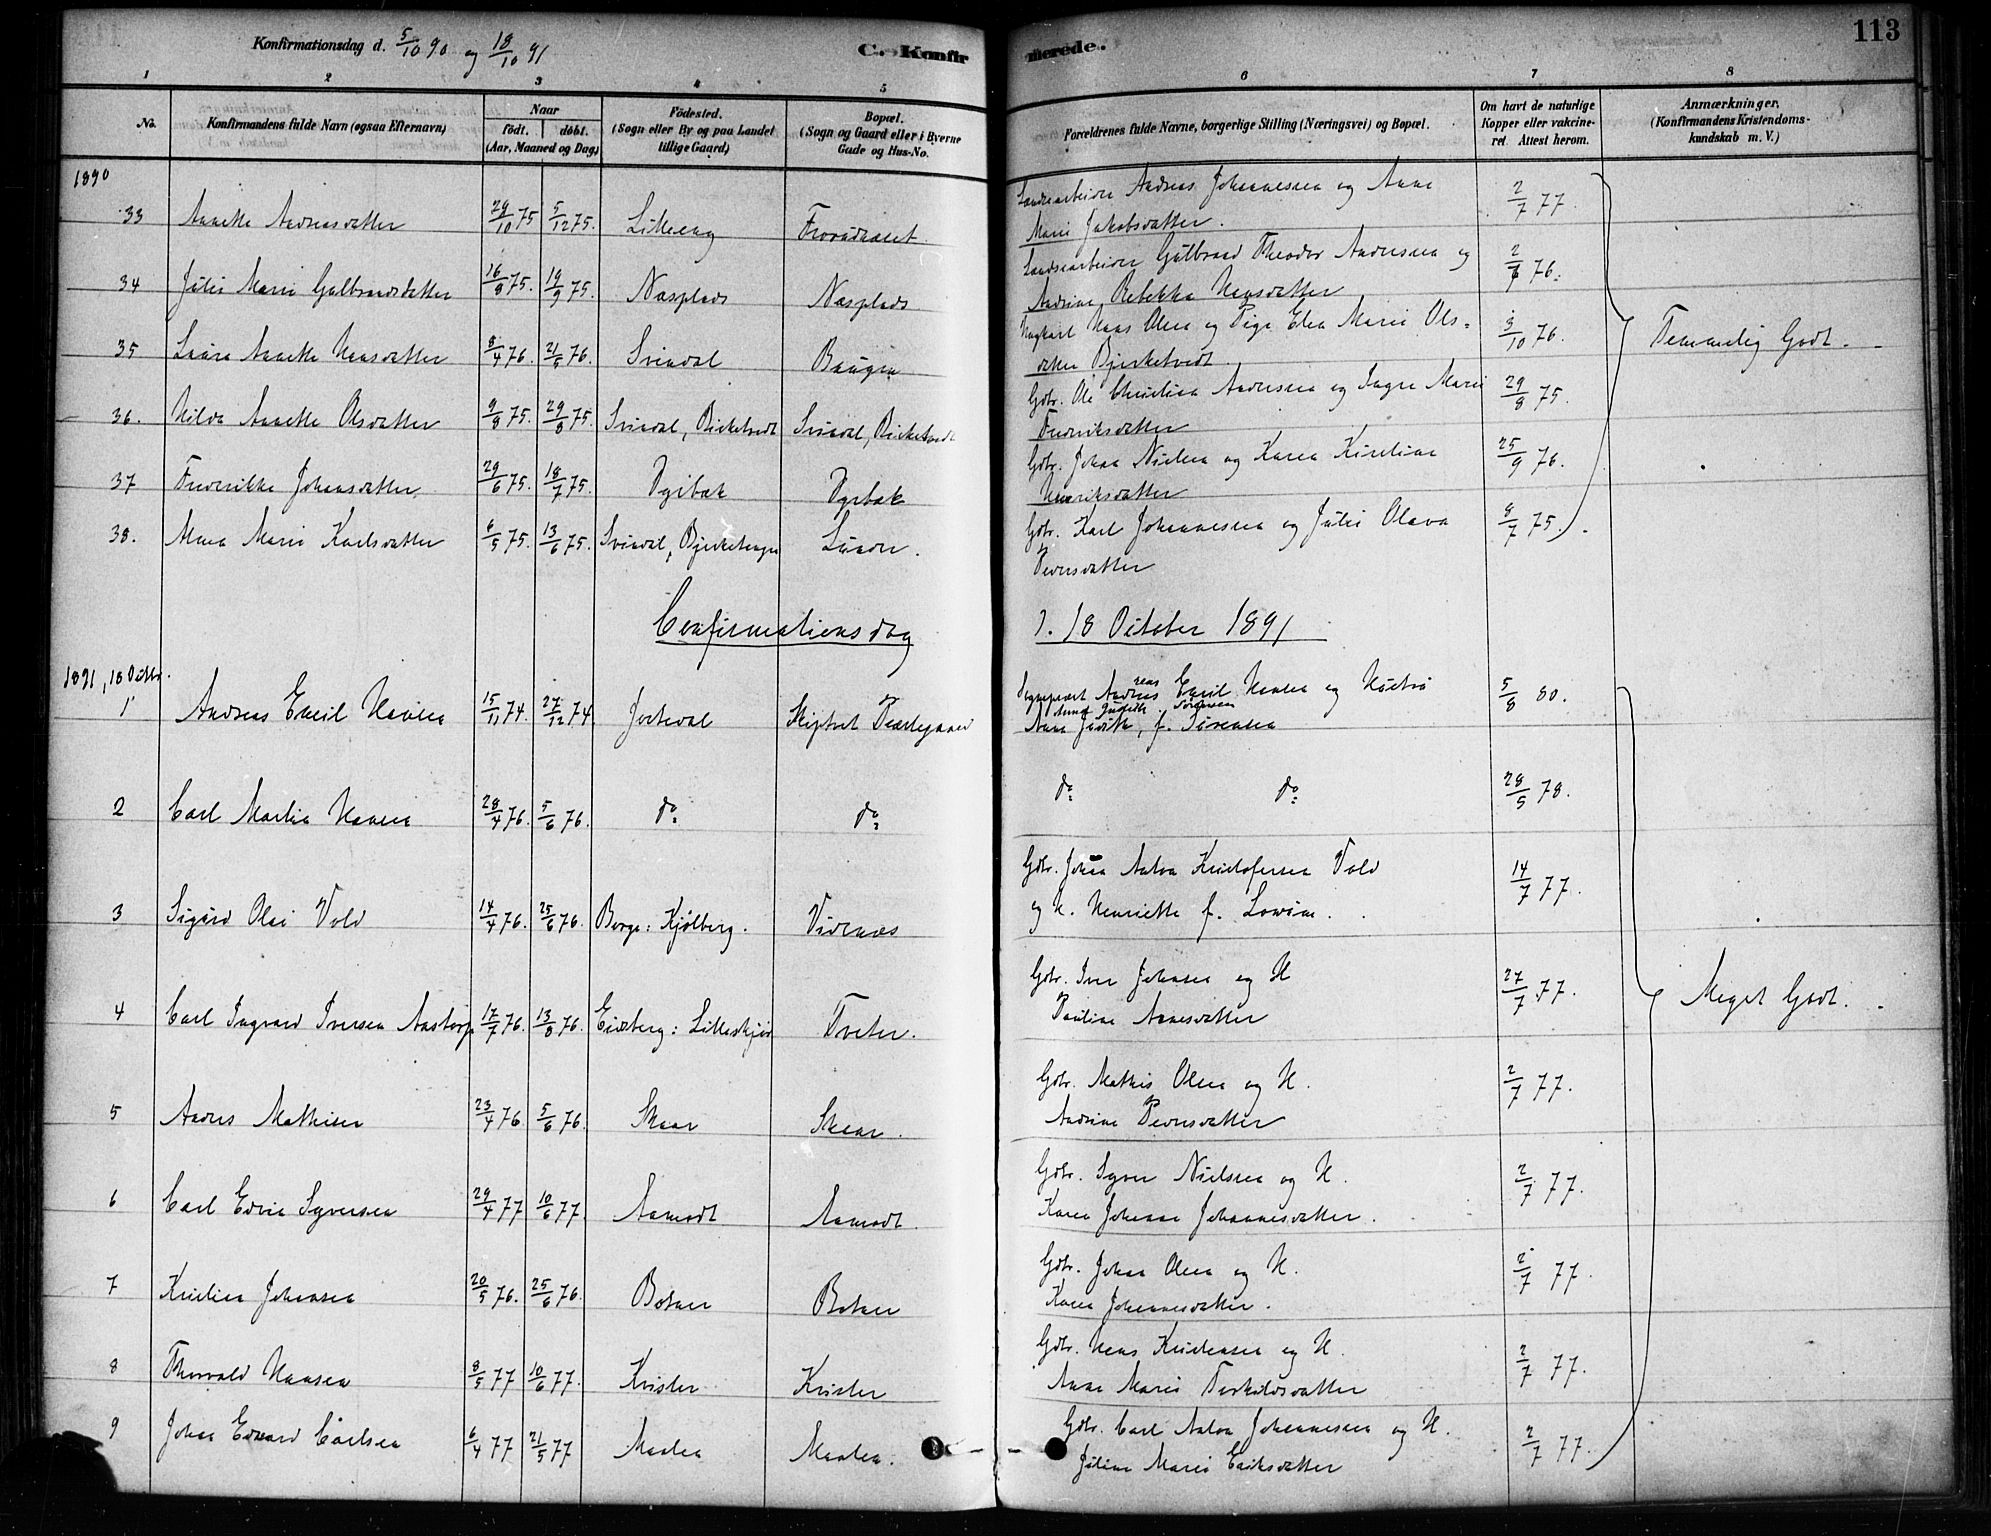 113
Konfirmationsdag d. 5/10 90 og 18/10 91
C. Konfirmerede.
1 2 3 4 5 6 7 8
No.
Konfirmandens fulde Navn (ogsaa Efternavn)
Naar
födt. döbt.
(Aar, Maaned og Dag)
Födested.
(Sogn eller By og paa Landet
tillige Gaard)
Bopæl.
(Sogn og Gaard eller i Byerne
Gade og Hus-No.
Forældrenes fulde Navne, borgerlige Stilling (Næringsvei) og Bopæl.
Om havt de naturlige
Kopper eller vakcine-
ret. Attest herom.
Anmærkninger.
(Konfirmandens Kristendoms-
kundskab m. V.)
1890
33 Anette Andreasdatter 29/10 75 5/12 75. Lilleeng
Andreas Johannesen og Anne
Marie Jakobsdatter. 2/7 77.
34 Julie Marie Gulbrandsdatter 16/8 75. 19/9 75. Næsplads Næsplads
Gulbrand Theodor Andersen og
Andrine Rebekka Hansdatter 76.
35 Laura Anette Hansdatter 8/4 76. 21/5 76. Svindal Baugen
Ungkarl Hans Olsen og Pige Elen Marie Ols-
datter Bjerketvedt 3/10 76.
Temmelig Godt.
36. Hilda Anette Olsdatter 9/8 75. 29/8 75. Svindal, Birketvedt Svindal, Birketvedt
Gdbr. Ole Christian Andersen og Inger Marie
Fredriksdatter 29/8 75.
37 Frederikke Johansdatter 29/6 75. 18/7 75. Dyrbæk Dyrbæk
Gdbr. Johan Nielsen og Karen Kirstine
Henriksdatter 25/9 76.
38. Maren Marie Karlsdatter 6/5 75. 13/6 75. Svindal, Lunder.
Gdbr. Karl Johannesen og Julie Olava
Pedersdatter 8/7 75.
Confirmationsdag
d. 18 October 1891
1891, 18 Octbr.
1 Andreas Emil Hansen 15/11 74. 27/12 74 Skiptvet Præstegaard
Andreas Emil Hansen og Hustru
Anna Judith Sørensen
Anna Judith, f. Sørensen 5/8 80.
2 Carl Martin Hansen 28/4 76. 5/6 76. do do
do do 28/5 78.
3 Sigurd Olai Vold 14/4 76. 25/6 76. Borge: Kjölberg. Vidnæs
Gdbr. Johan Anton Kristofersen Vold
og H. Henriette f. 14/7 77.
4 Carl Ingvard Iversen Aastorp 17/7 76. 13/8 76. Eidsberg: Tveter.
Gdbr. Iver Johansen og H
Pauline 27/7 77.
Meget Godt.
5 Anders Mathisen 23/4 76 5/6 76. Skaar Skaar.
Gdbr. Mathis Olsen og H.
Andrine Pedersdatter 2/7 77.
6 Carl Edvin Syversen 29/4 77 10/6 77. Aamodt Aamodt.
Gdbr. Syver Nielsen og H.
Karen Johanne Johannesdatter. 2/7 77.
7 Kristian Johansen 20/5 76. 25/6 76. Botner Botner
Gdbr. Johan Olsen og H.
Karen Johannesdatter. 2/7 77.
8 Thorvald Hansen 8/5 77 10/6 77. Krisler Krisler
Gdbr. Hans Kristensen og H.
Anne Marie Terkildsdatter 2/7 77.
9 Johan Edvard Carlsen 6/4 77 21/5 77 Maalen Maalen.
Gdbr. Carl Anton Johannesen og H.
Juline Marie Eriksdatter 2/7 77.